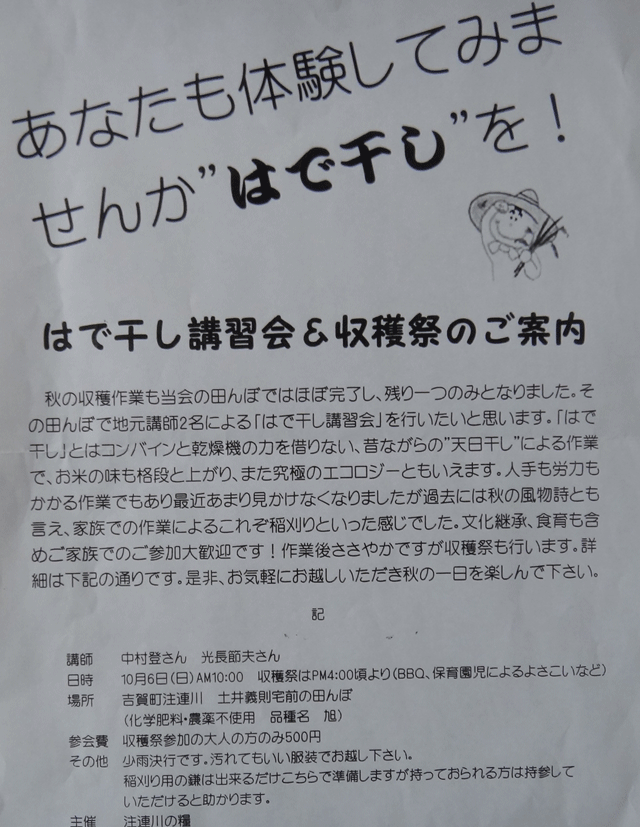 あなたも体験してみま
せんか"はで干し"を！
はで干し講習会＆収穫祭のご案内
秋の収穫作業も当会の田んぼではほぼ完了し、残り一つのみとなりました。そ
の田んぼで地元講師2名による「はで干し講習会」を行いたいと思います。「はで
干し」とはコンバインと乾燥機の力を借りない、昔ながらの"天日干し"による作業
で、お米の味も格段と上がり、また究極のエコロジーともいえます。人手も労力も
かかる作業でもあり最近あまり見かけなくなりましたが過去には秋の風物詩とも
言え、家族での作業によるこれぞ稲刈りといった感じでした。文化継承、食育も含
めご家族でのご参加大歓迎です！作業後ささやかですが収穫祭も行います。詳
細は下記の通りです。是非、お気軽にお越しいただき秋の一日を楽しんで下さい。
記
講師 中村登さん 光長節夫さん
日時 10月6日(日)AM10:00 収穫祭はPM4:00頃より(BBQ、保育園児によるよさこいなど)
場所 吉賀町注連川 土井義則宅前の田んぼ
(化学肥料・農薬不使用 品種名 旭)
参会費 収穫祭参加の大人の方のみ500円
その他 少雨決行です。汚れてもいい服装でお越し下さい。
稲刈り用の鎌は出来るだけこちらで準備しますが持っておられる方は持参して
いただけると助かります。
主催 注連川の糧